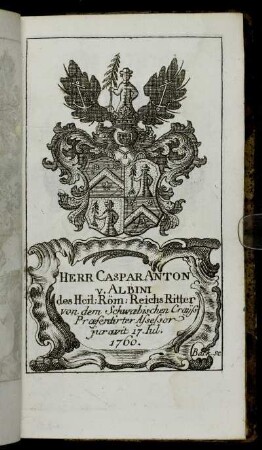 HERR CASPAR ANTON
v. ALBINI
des Heil: Röm: Reichs Ritter
von dem Schwæbischen Craiss
Præsentirter Assessor
juravit 17. Iul.
1760.